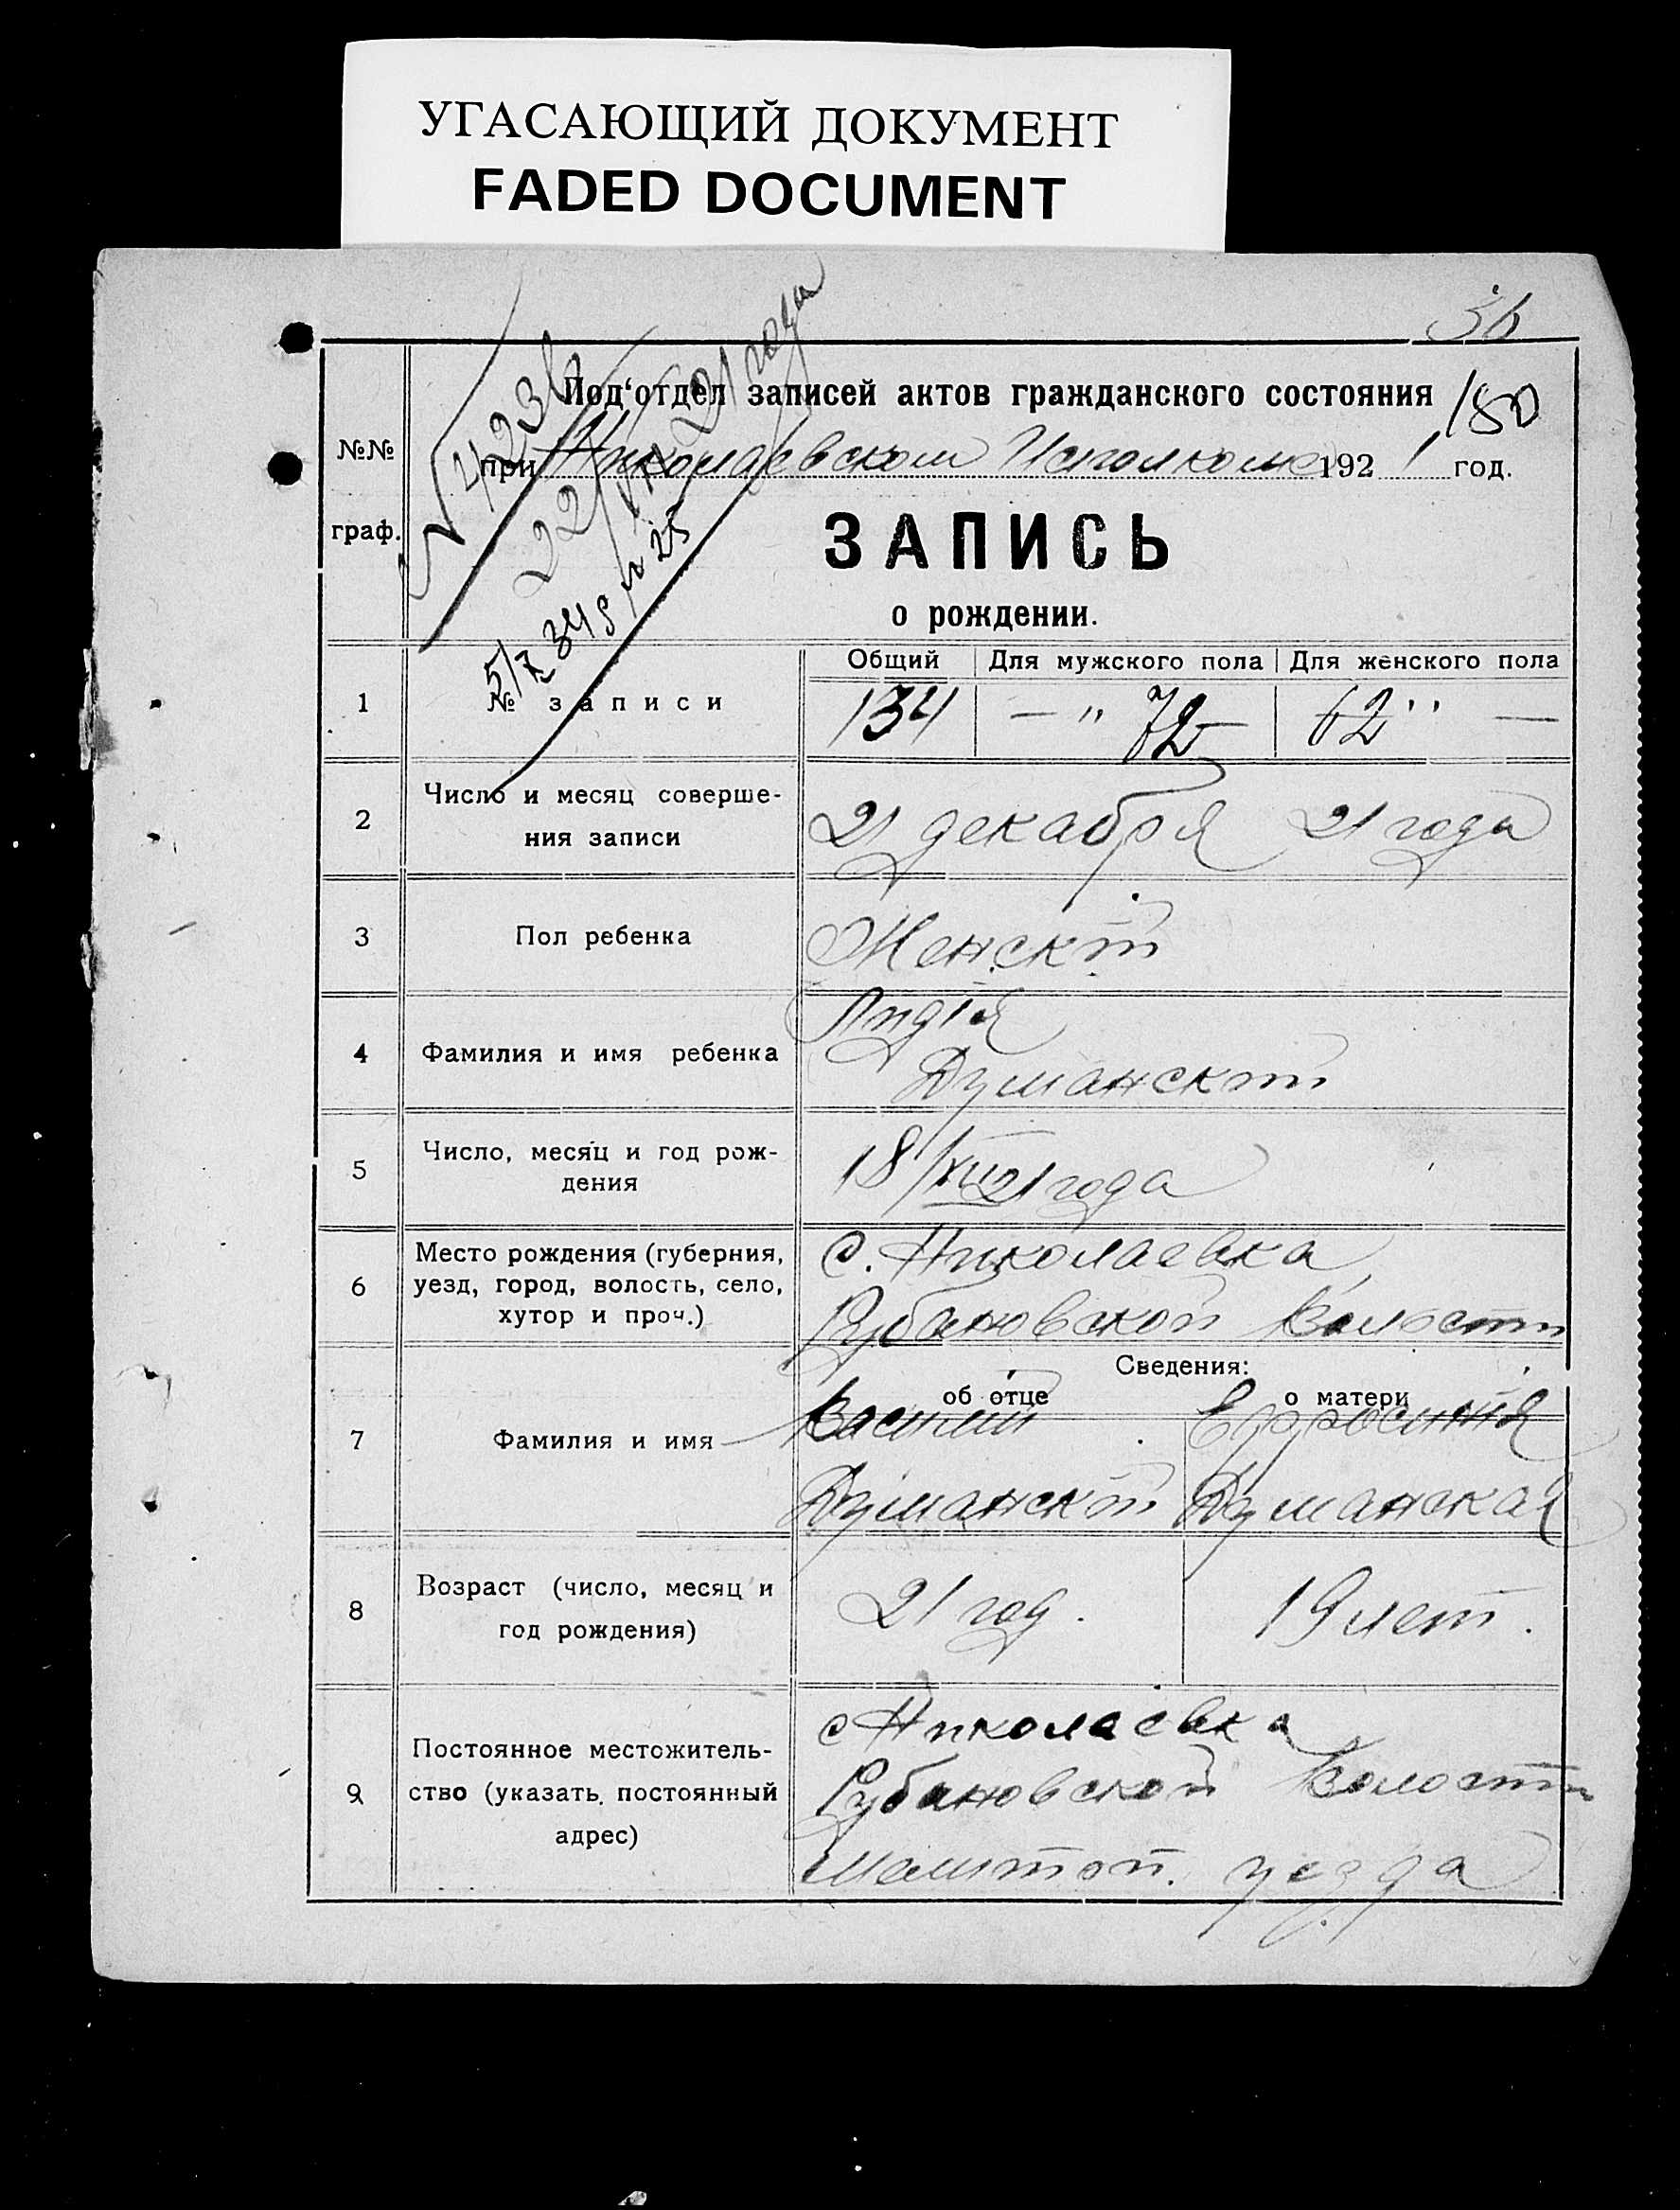 УГАСАЮЩИЙ ДОКУМЕНТ
FADED DOCUMENT
36
180
Под‘отдел записей актов гражданского состояния
№№ граф.
при Николаевском Исполкоме 1921 год.
ЗАПИСЬ
о рождении.
Общий Для мужского пола Для женского пола
1 № записи 134 — " 72 — 62 " —
2 Число и месяц соверше-
ния записи 21 декабря 21 года
3 Пол ребенка Женскій
4 Фамилия и имя ребенка Лидія
Думанскій
5 Число, месяц и год рож-
дения 18/XII 21 года
6 Место рождения (губерния,
уезд, город, волость, село,
хутор и проч.) с. Николаевка
Рубановской Волости
Сведения:
об отце о матери
7 Фамилия и имя Василий Ефросинія
Думанскій Думанская
8 Возраст (число, месяц и
год рождения) 21 год. 19 лет.
9 Постоянное местожитель-
ство (указать постоянный
адрес) с Николаевка
Рубановской Волости
уезда